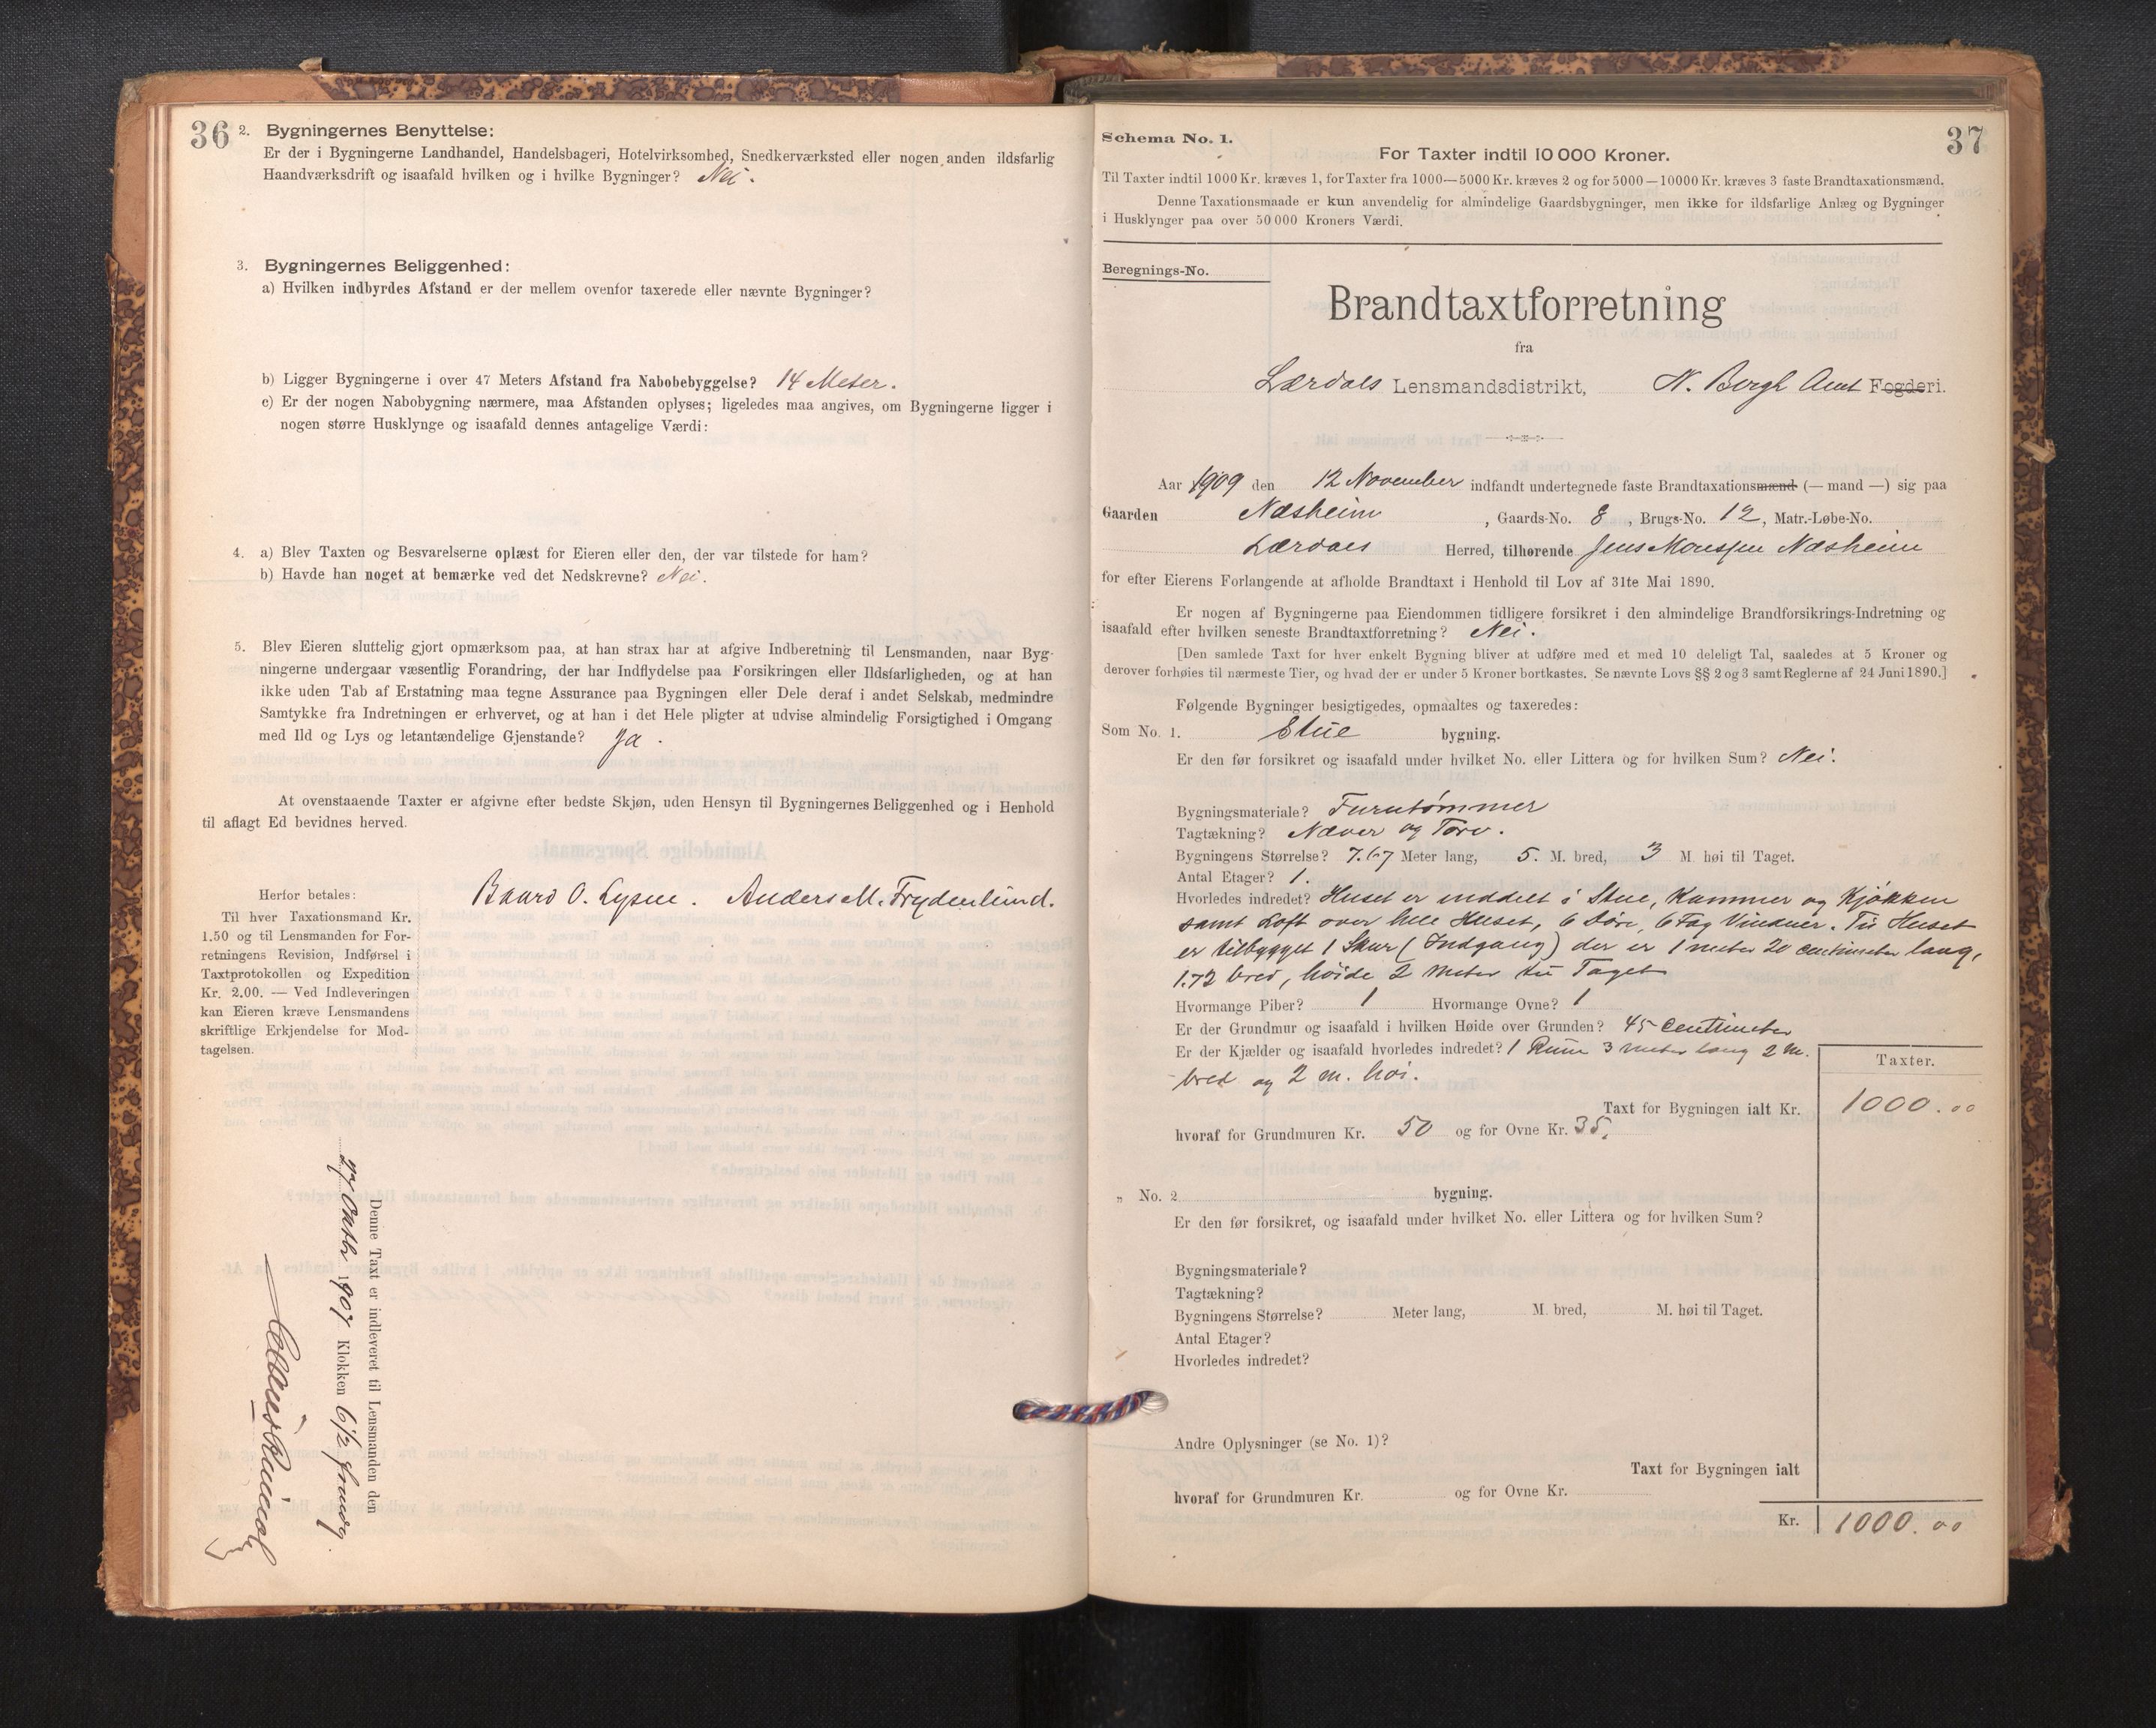 36
2. Bygningernes Benyttelse:
Er der i Bygningerne Landhandel, Handelsbageri, Hotelvirksomhed, Snedkerværksted eller nogen anden ildsfarlig
Haandværksdrift og isaafald hvilken og i hvilke Bygninger? Nei.
3. Bygningernes Beliggenhed:
a) Hvilken indbyrdes Afstand er der mellem ovenfor taxerede eller nævnte Bygninger?
b) Ligger Bygningerne i over 47 Meters Afstand fra Nabobebyggelse? 14 Meter.
c) Er der nogen Nabobygning nærmere, maa Afstanden oplyses; ligeledes maa angives, om Bygningerne ligger i
nogen større Husklynge og isaafald dennes antagelige Værdi:
4. a) Blev Taxten og Besvarelserne oplæst for Eieren eller den, der var tilstede for ham?
b) Havde han noget at bemærke ved det Nedskrevne? Nei.
5. Blev Eieren sluttelig gjort opmærksom paa, at han strax har at afgive Indberetning til Lensmanden, naar Byg-
ningerne undergaar væsentlig Forandring, der har Indflydelse paa Forsikringen eller Ildsfarligheden, og at han
ikke uden Tab af Erstatning maa tegne Assurance paa Bygningen eller Dele deraf i andet Selskab, medmindre
Samtykke fra Indretningen er erhvervet, og at han i det Hele pligter at udvise almindelig Forsigtighed i Omgang
med Ild og Lys og letantændelige Gjenstande? Ja.
At ovenstaaende Taxter er afgivne efter bedste Skjøn, uden Hensyn til Bygningernes Beliggenhed og i Henhold
til aflagt Ed bevidnes herved.
Baard O. Lysne. Anders M. Frydenlund.
Herfor betales:
Til hver Taxationsmand Kr.
1.50 og til Lensmanden for For-
retningens Revision, Indførsel i
Taxtprotokollen og Expedition
Kr. 2.00. — Ved Indleveringen
kan Eieren kræve Lensmandens
skriftlige Erkjendelse for Mod-
tagelsen.
Denne Taxt er indleveret til Lensmanden den
27 Oktbr 1907 Klokken 6 1/2
37
Schema No. 1.
For Taxter indtil 10 000 Kroner.
Til Taxter indtil 1000 Kr. kræves 1, for Taxter fra 1000—5000 Kr. kræves 2 og for 5000—10000 Kr. kræves 3 faste Brandtaxationsmænd.
Denne Taxationsmaade er kun anvendelig for almindelige Gaardsbygninger, men ikke for ildsfarlige Anlæg og Bygninger
i Husklynger paa over 50 000 Kroners Værdi.
Beregnings-No.
Brandtaxtforretning
fra
Lærdals Lensmandsdistrikt, N. Bergh Amt Fogderi.
Aar 1909 den 12 November indfandt undertegnede faste Brandtaxationsmænd (— mand —) sig paa
Gaarden Næsheim, Gaards-No. 8, Brugs-No. 12, Matr.-Løbe-No.
Lærdals Herred, tilhørende Jens Monssen Næsheim
for efter Eierens Forlangende at afholde Brandtaxt i Henhold til Lov af 31te Mai 1890.
Er nogen af Bygningerne paa Eiendommen tidligere forsikret i den almindelige Brandforsikrings-Indretning og
isaafald efter hvilken seneste Brandtaxtforretning? Nei.
[Den samlede Taxt for hver enkelt Bygning bliver at udføre med et med 10 deleligt Tal, saaledes at 5 Kroner og
derover forhøies til nærmeste Tier, og hvad der er under 5 Kroner bortkastes. Se nævnte Lovs §§ 2 og 3 samt Reglerne af 24 Juni 1890.]
Følgende Bygninger besigtigedes, opmaaltes og taxeredes:
Som No. 1. Stue bygning.
Er den før forsikret og isaafald under hvilket No. eller Littera og for hvilken Sum? Nei.
Bygningsmateriale? Furutømmer
Tagtækning? Næver og Torv.
Bygningens Størrelse? 7.67 Meter lang, 5. M. bred, 3 M. høi til Taget.
Antal Etager? 1.
Hvorledes indredet? Huset er inddelt i Stue, Kammer og Kjøkken
samt Loft over hele Huset, 6 Døre, 6 Fag Vinduer. Til Huset
er tilbygget 1 Skur (Indgang) der er 1 meter 20 centimeter lang,
1.72 bred, høide 2 Meter til Taget
Hvormange Piber? 1 Hvormange Ovne? 1
Er der Grundmur og isaafald i hvilken Høide over Grunden? 45 Centimeter
Er der Kjælder og isaafald hvorledes indredet? 1 Rum 3 meter lang 2 m.
bred og 2 m. høi.
Taxter.
Taxt for Bygningen ialt Kr. 1000.00
hvoraf for Grundmuren Kr. 50 og for Ovne Kr. 35.
„ No. 2 bygning.
Er den før forsikret, og isaafald under hvilket No. eller Littera og for hvilken Sum?
Bygningsmateriale?
Tagtækning?
Bygningens Størrelse? Meter lang, M. bred, M. høi til Taget.
Antal Etager?
Hvorledes indredet?
Andre Oplysninger (se No. 1)?
Taxt for Bygningen ialt
hvoraf for Grundmuren Kr. og for Ovne Kr.
Kr. 1000.00